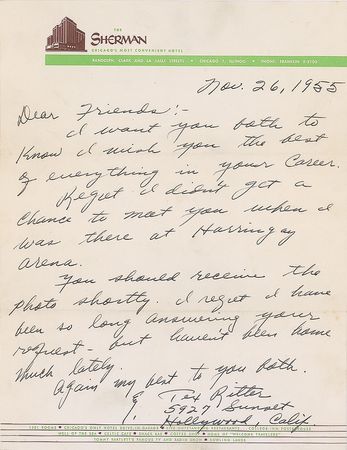 THE
SHERMAN
CHICAGO'S MOST CONVENIENT HOTEL
RANDOLPH, CLARK AND LA SALLE STREETS • CHICAGO 1, ILLINOIS • PHONE: FRANKLIN 2-2100
Nov. 26, 1955
Dear Friends:-
I want you both to
know I wish you the best
of everything in your Career.
Regret I didn't get a
chance to meet you when I
was there at Harringay
Arena.
You should receive the
photo shortly. I regret I have
been so long answering your
request - but haven't been home
much lately.
Again my best to you both.
Tex Ritter
5927 Sunset
Hollywood, Calif
1501 ROOMS • CHICAGO'S ONLY HOTEL DRIVE-IN GARAGE • RESTAURANTS • COLLEGE INN PORTERHOUSE
WELL OF THE SEA • CELTIC CAFE • SNACK BAR • COFFEE SHOP • HOME OF "WELCOME TRAVELERS"
TOMMY BARTLETT'S FAMOUS TV AND RADIO SHOW • BOWLING LANES